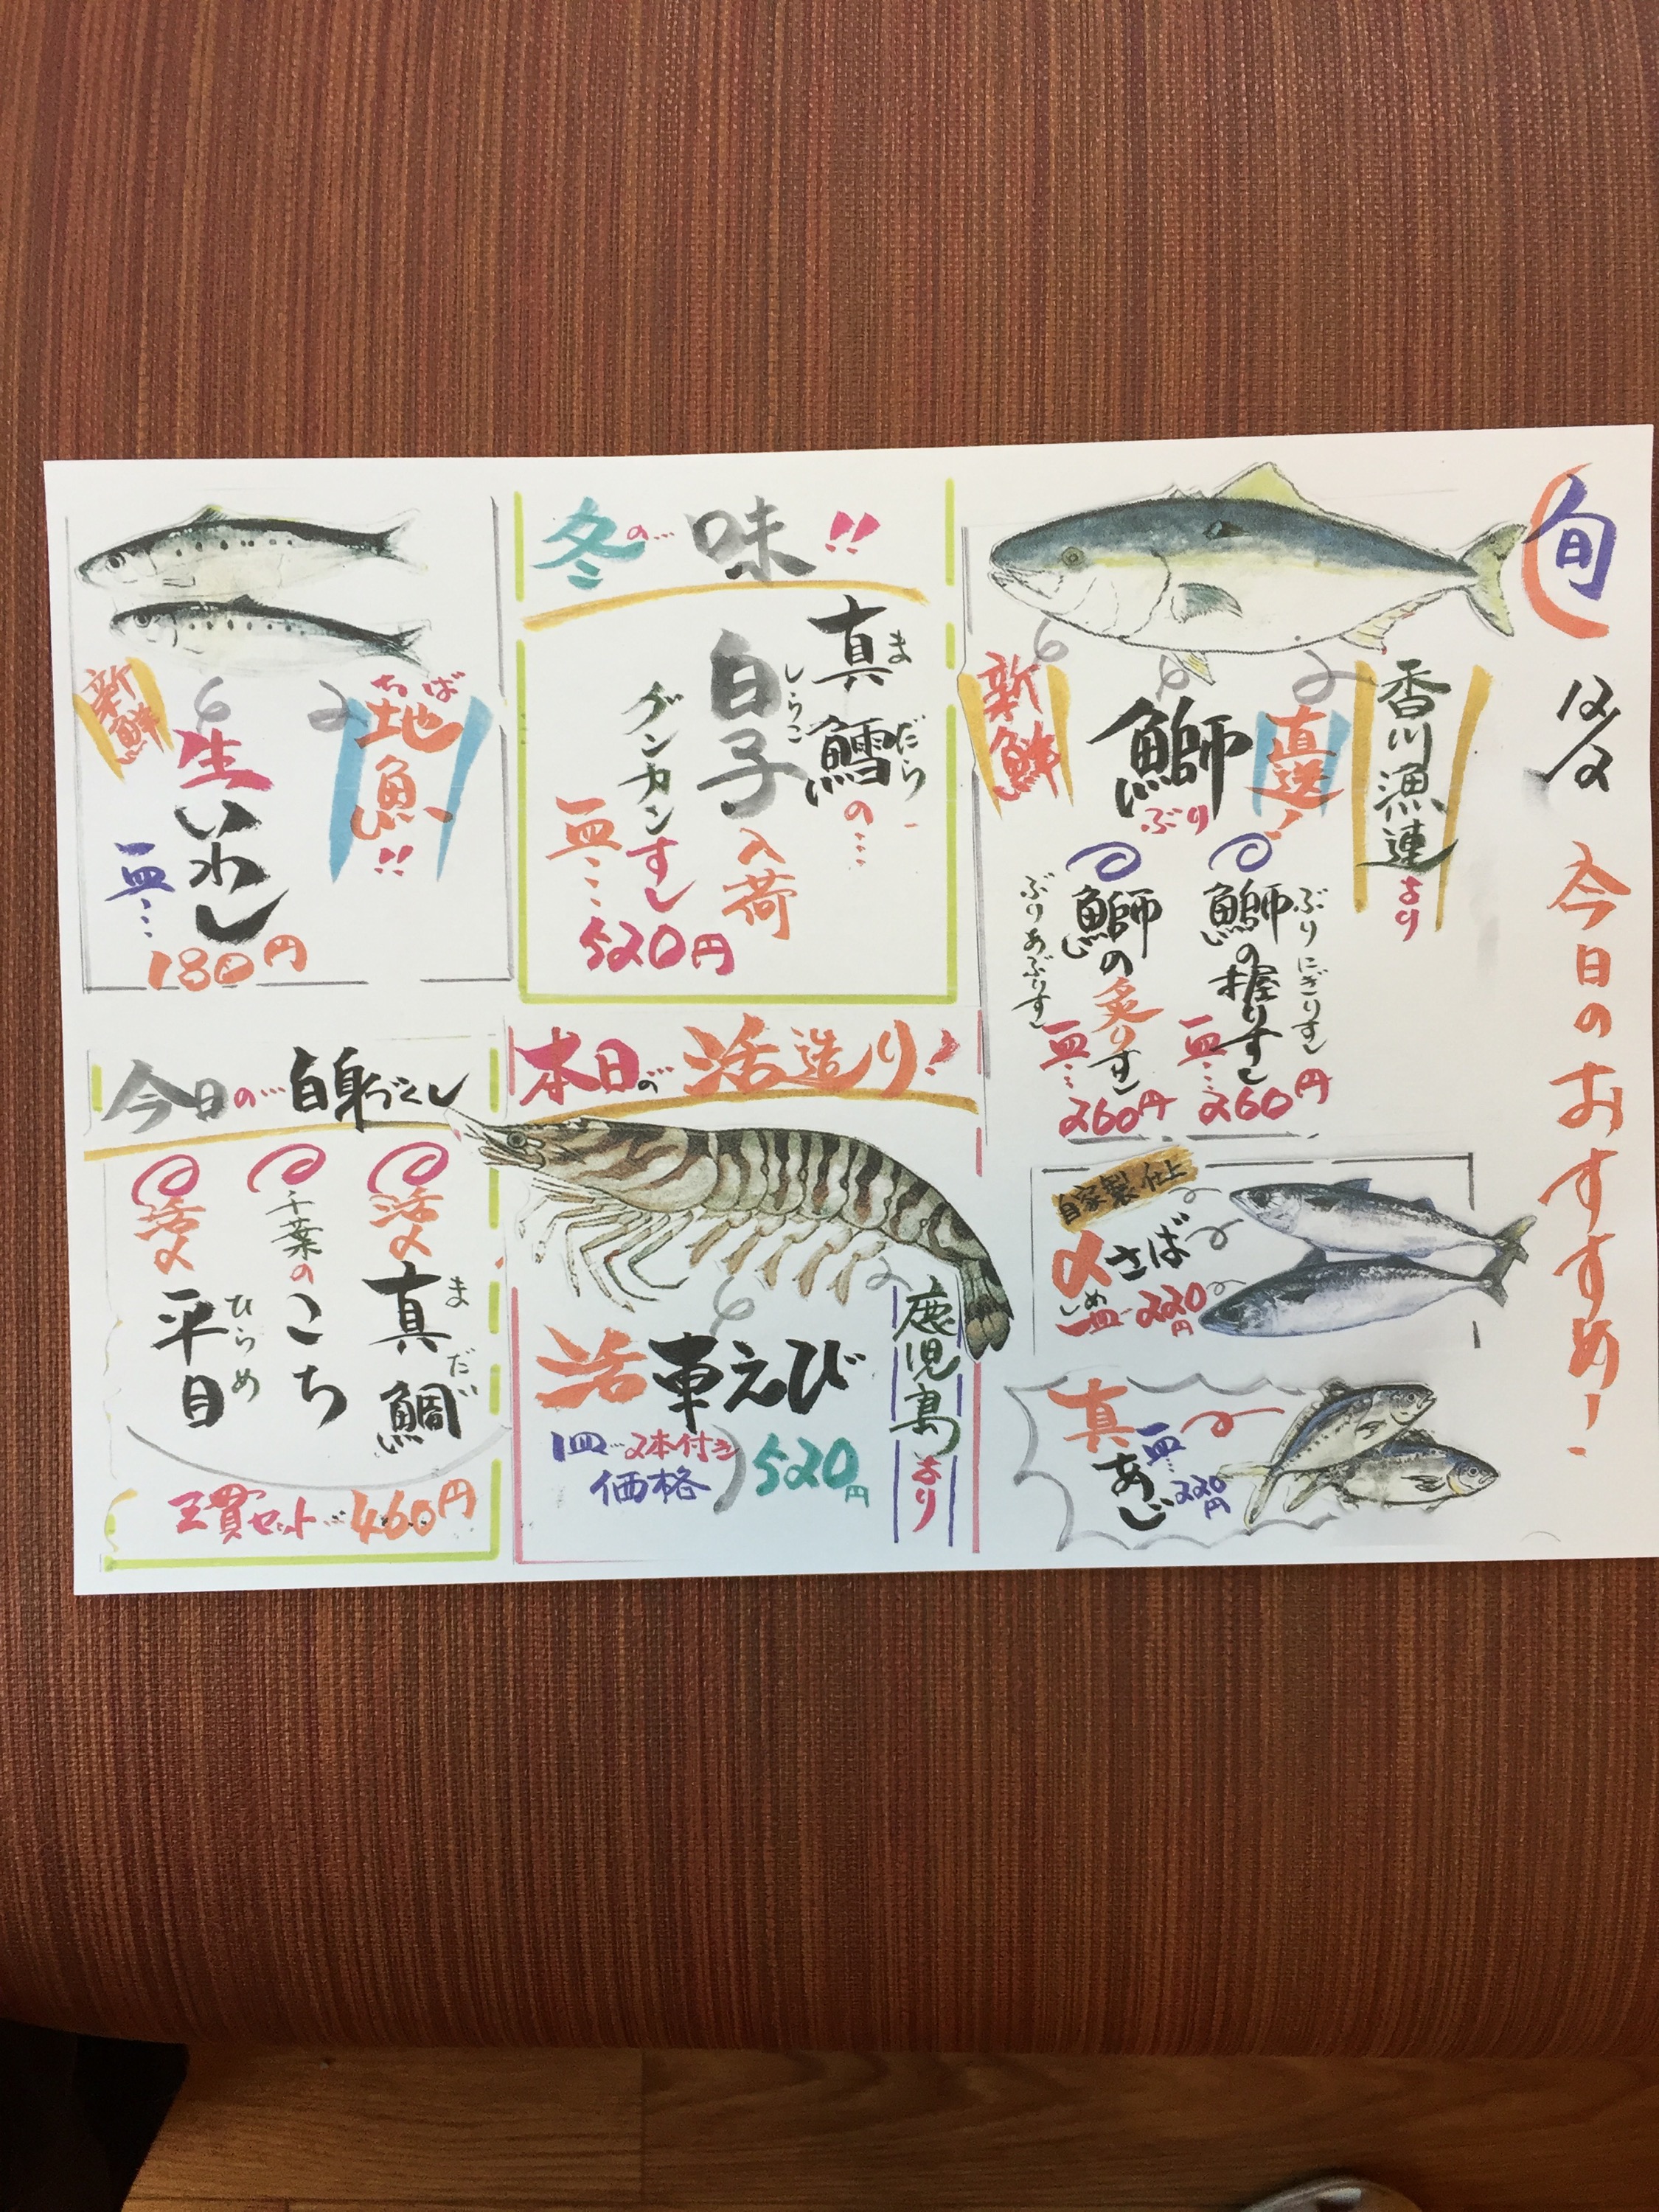 旬
12/2
今日のおすすめ!
香川漁連より
直送!
鰤
ぶり
新鮮
鰤の握りすし
ぶりにぎりすし
一皿…260円
鰤の炙りすし
ぶりあぶりすし
一皿…260円
自家製仕上
〆さば
しめ
一皿…220円
真あじ
一皿…220円
冬の…味!!
真鱈の…
まだら
白子
しらこ
入荷
グンカンすし
一皿…
520円
本日の活造り!
鹿児島より
活車えび
1皿…2本付き
価格
520円
ちば
地魚!!
新鮮
生いわし
一皿…
180円
今日の…白身づくし
活〆
真鯛
まだい
千葉の
こち
活〆
平目
ひらめ
三貫セット…460円